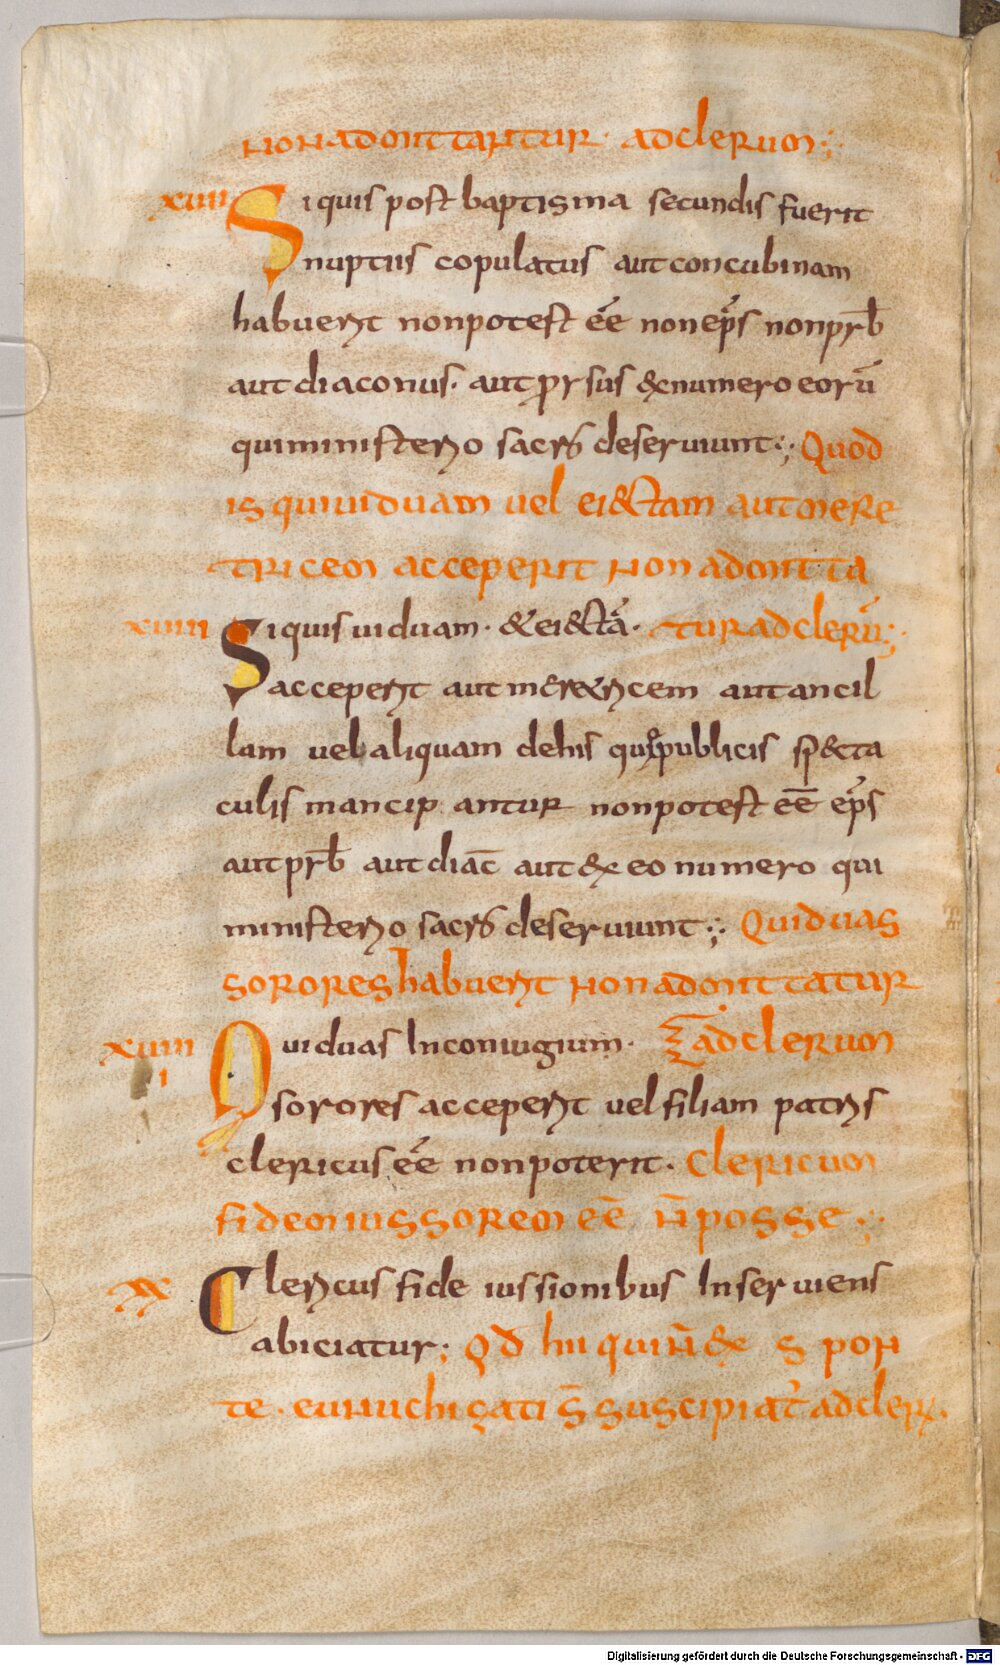 non admittantur· ad clerum·;·
xviii Si quis post baptisma secundis fuerit
nuptiis copulatus aut concubinam
habuerit non potest eē non ep̄s non prb̄
aut diaconus· aut prorsus ex numero eorū
qui ministerio sacro deserviunt·;· Quod
is qui viduam vel eiectam aut mere
tricem acceperit non admitta
xviiii Si quis viduam· et eiectā· tur ad clerū·;·
acceperit aut meretricem aut ancil
lam vel aliquam de his qui publicis specta
culis mancipantur non potest eē ep̄s
aut prb̄ aut diac̄ aut ex eo numero qui
ministerio sacro deserviunt·;· Qui duas
sorores habuerit non admittatur
xviiii Qui duas In coniugium· ad clerum
i sorores acceperit vel filiam patris
clericus eē non poterit· Clericum
fidem iussorem eē n̄ posse·;·
xx Clericus fide iussionibus Inserviens
abiciatur; Qd̄ hii qui n̄ ex spon
te· eunuchizati s̄ suscipiat̄ ad cler
Digitalisierung gefördert durch die Deutsche Forschungsgemeinschaft - DFG